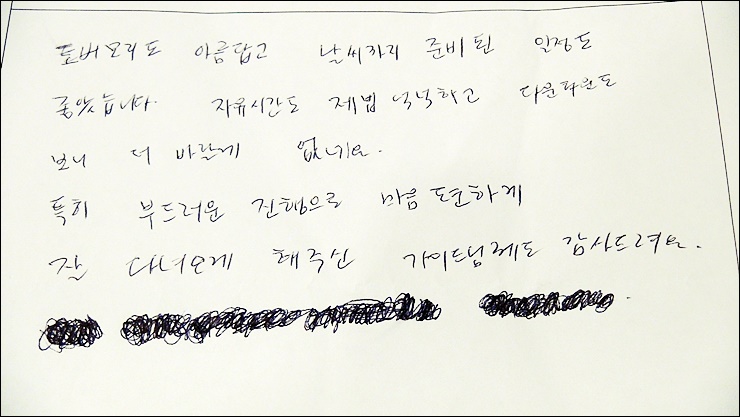 토버모리도 아름답고 날씨까지 준비된 일정도
좋았습니다. 자유시간도 제법 넉넉하고 다운타운도
보니 더 바랄게 없네요.
특히 부드러운 진행으로 마음 든든하게
잘 다녀오게 해주신 가이드님께도 감사드려요.